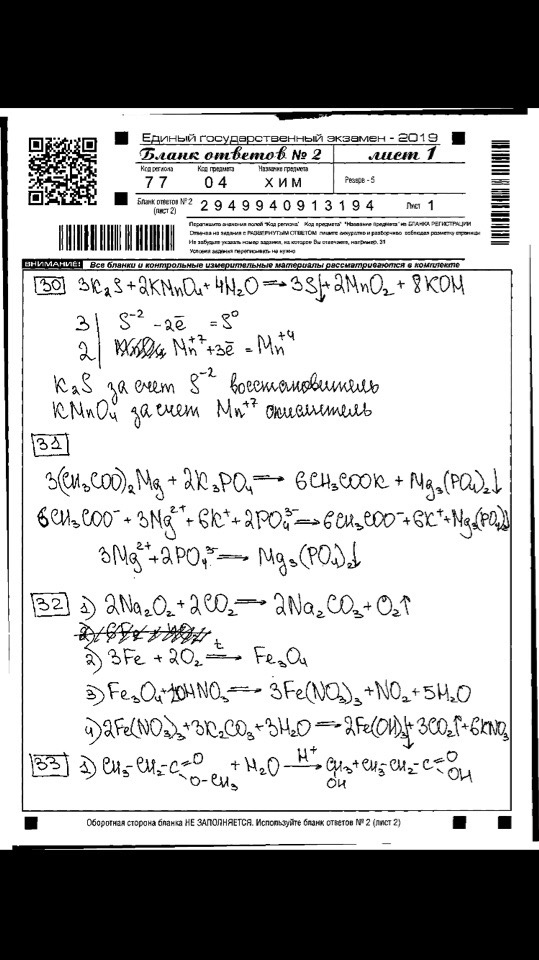 Единый государственный экзамен - 2019
Бланк ответов № 2 лист 1
Код региона Код предмета Название предмета
77 04 ХИМ Резерв - 5
Бланк ответов № 2 (лист 2) 2949940913194 Лист 1
Перепишите значения полей "Код региона" "Код предмета" "Название предмета" из БЛАНКА РЕГИСТРАЦИИ
Отвечая на задания с РАЗВЕРНУТЫМ ОТВЕТОМ пишите аккуратно и разборчиво соблюдая разметку страницы
Не забудьте указать номер задания, на которое Вы отвечаете, например, 31
Условия задания переписывать не нужно
ВНИМАНИЕ! Все бланки и контрольные измерительные материалы рассматриваются в комплекте
30 3K₂S + 2KMnO₄ + 4H₂O → 3S↓ + 2MnO₂ + 8KOH
3 | S⁻² - 2ē = S⁰
2 | Mn⁺⁷ + 3ē = Mn⁺⁴
K₂S за счет S⁻² восстановитель
KMnO₄ за счет Mn⁺⁷ окислитель
31
3(CH₃COO)₂Mg + 2K₃PO₄ → 6CH₃COOK + Mg₃(PO₄)₂↓
6CH₃COO⁻ + 3Mg²⁺ + 6K⁺ + 2PO₄³⁻ → 6CH₃COO⁻ + 6K⁺ + Mg₃(PO₄)₂↓
3Mg²⁺ + 2PO₄³⁻ → Mg₃(PO₄)₂↓
32 1) 2Na₂O₂ + 2CO₂ → 2Na₂CO₃ + O₂↑
2) 3Fe + 2O₂ →t Fe₃O₄
3) Fe₃O₄ + 10HNO₃ → 3Fe(NO₃)₃ + NO₂ + 5H₂O
4) 2Fe(NO₃)₃ + 3K₂CO₃ + 3H₂O → 2Fe(OH)₃↓ + 3CO₂↑ + 6KNO₃
33 1) CH₃-CH₂-C=O O-CH₃ + H₂O →H⁺ CH₃ OH + CH₃-CH₂-C=O OH
Оборотная сторона бланка НЕ ЗАПОЛНЯЕТСЯ. Используйте бланк ответов № 2 (лист 2)